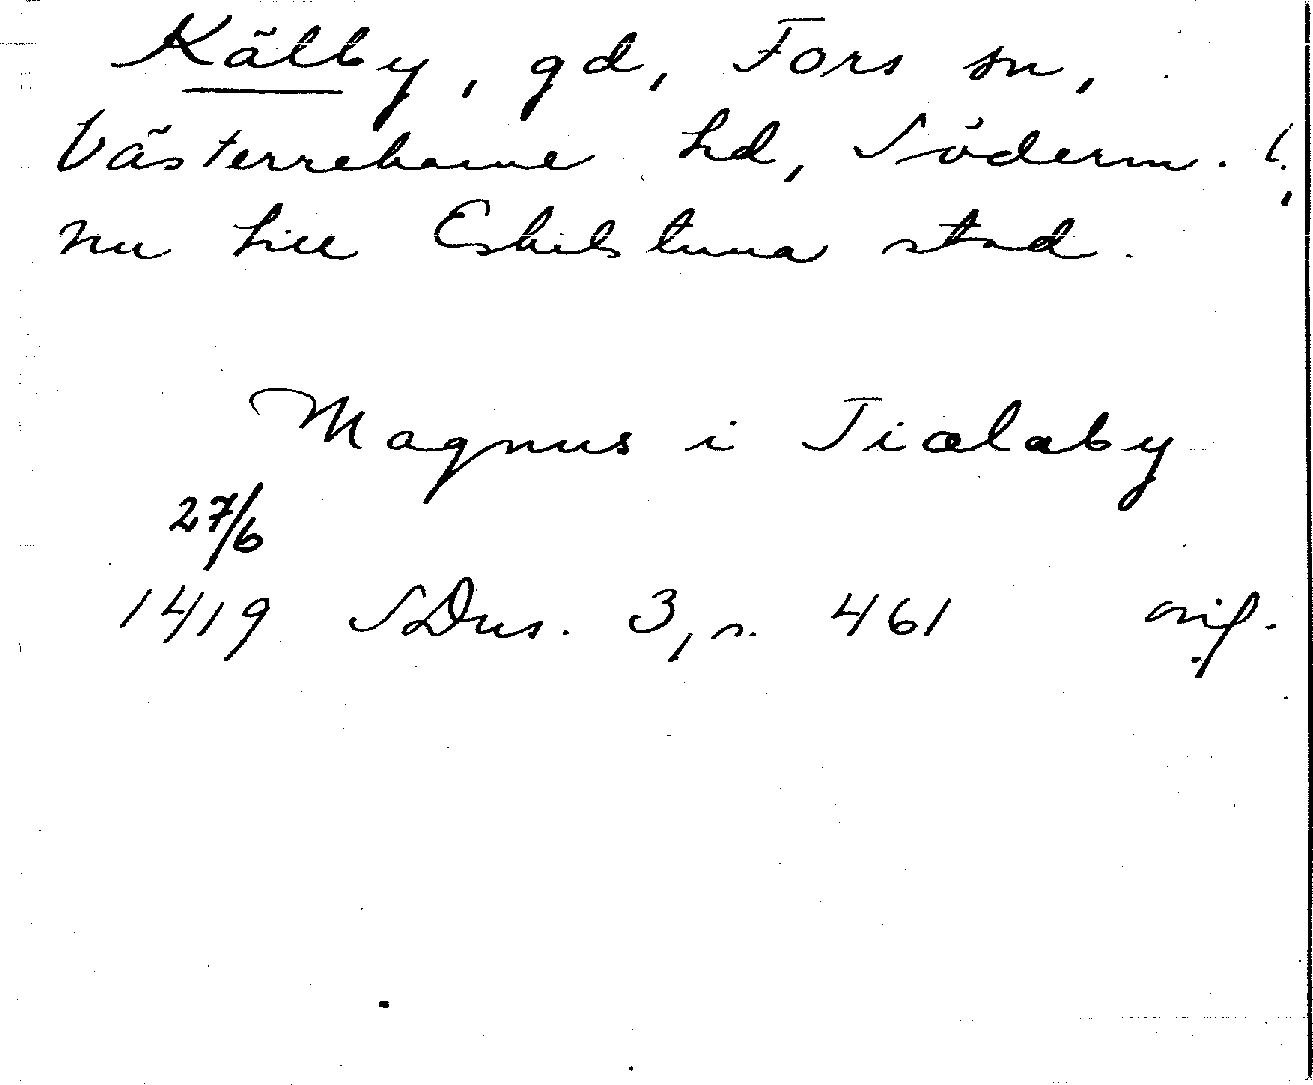 Kälby, gd, Fors sn,
Västerrekarne hd, Söderm. l.,
nu till Eskilstuna stad.
Magnus i Tiælaby
27/6
1419 SDns. 3, s. 461 orig.